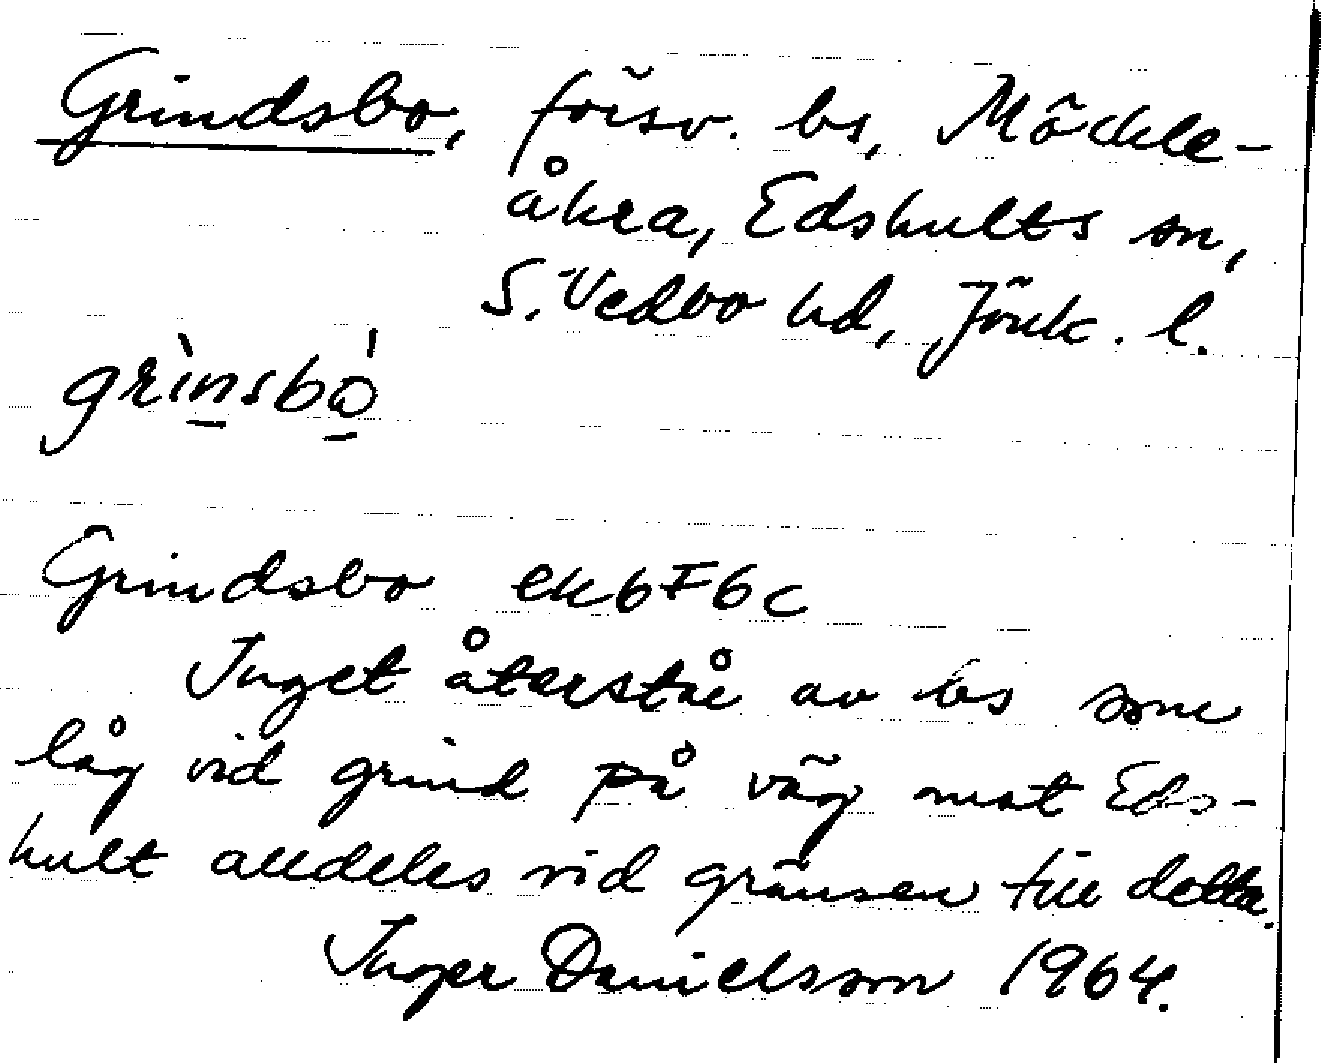 Grindsbo, försv. bs, Möckle-
åkra, Edshults sn,
S. Vedbo hd, Jönk. l.
grìnsbó
Grindsbo ek6F6c
Inget återstår av bs som
låg vid grind på väg mot Eds-
hult alldeles vid gränsen till detta.
Inger Danielsson 1964.